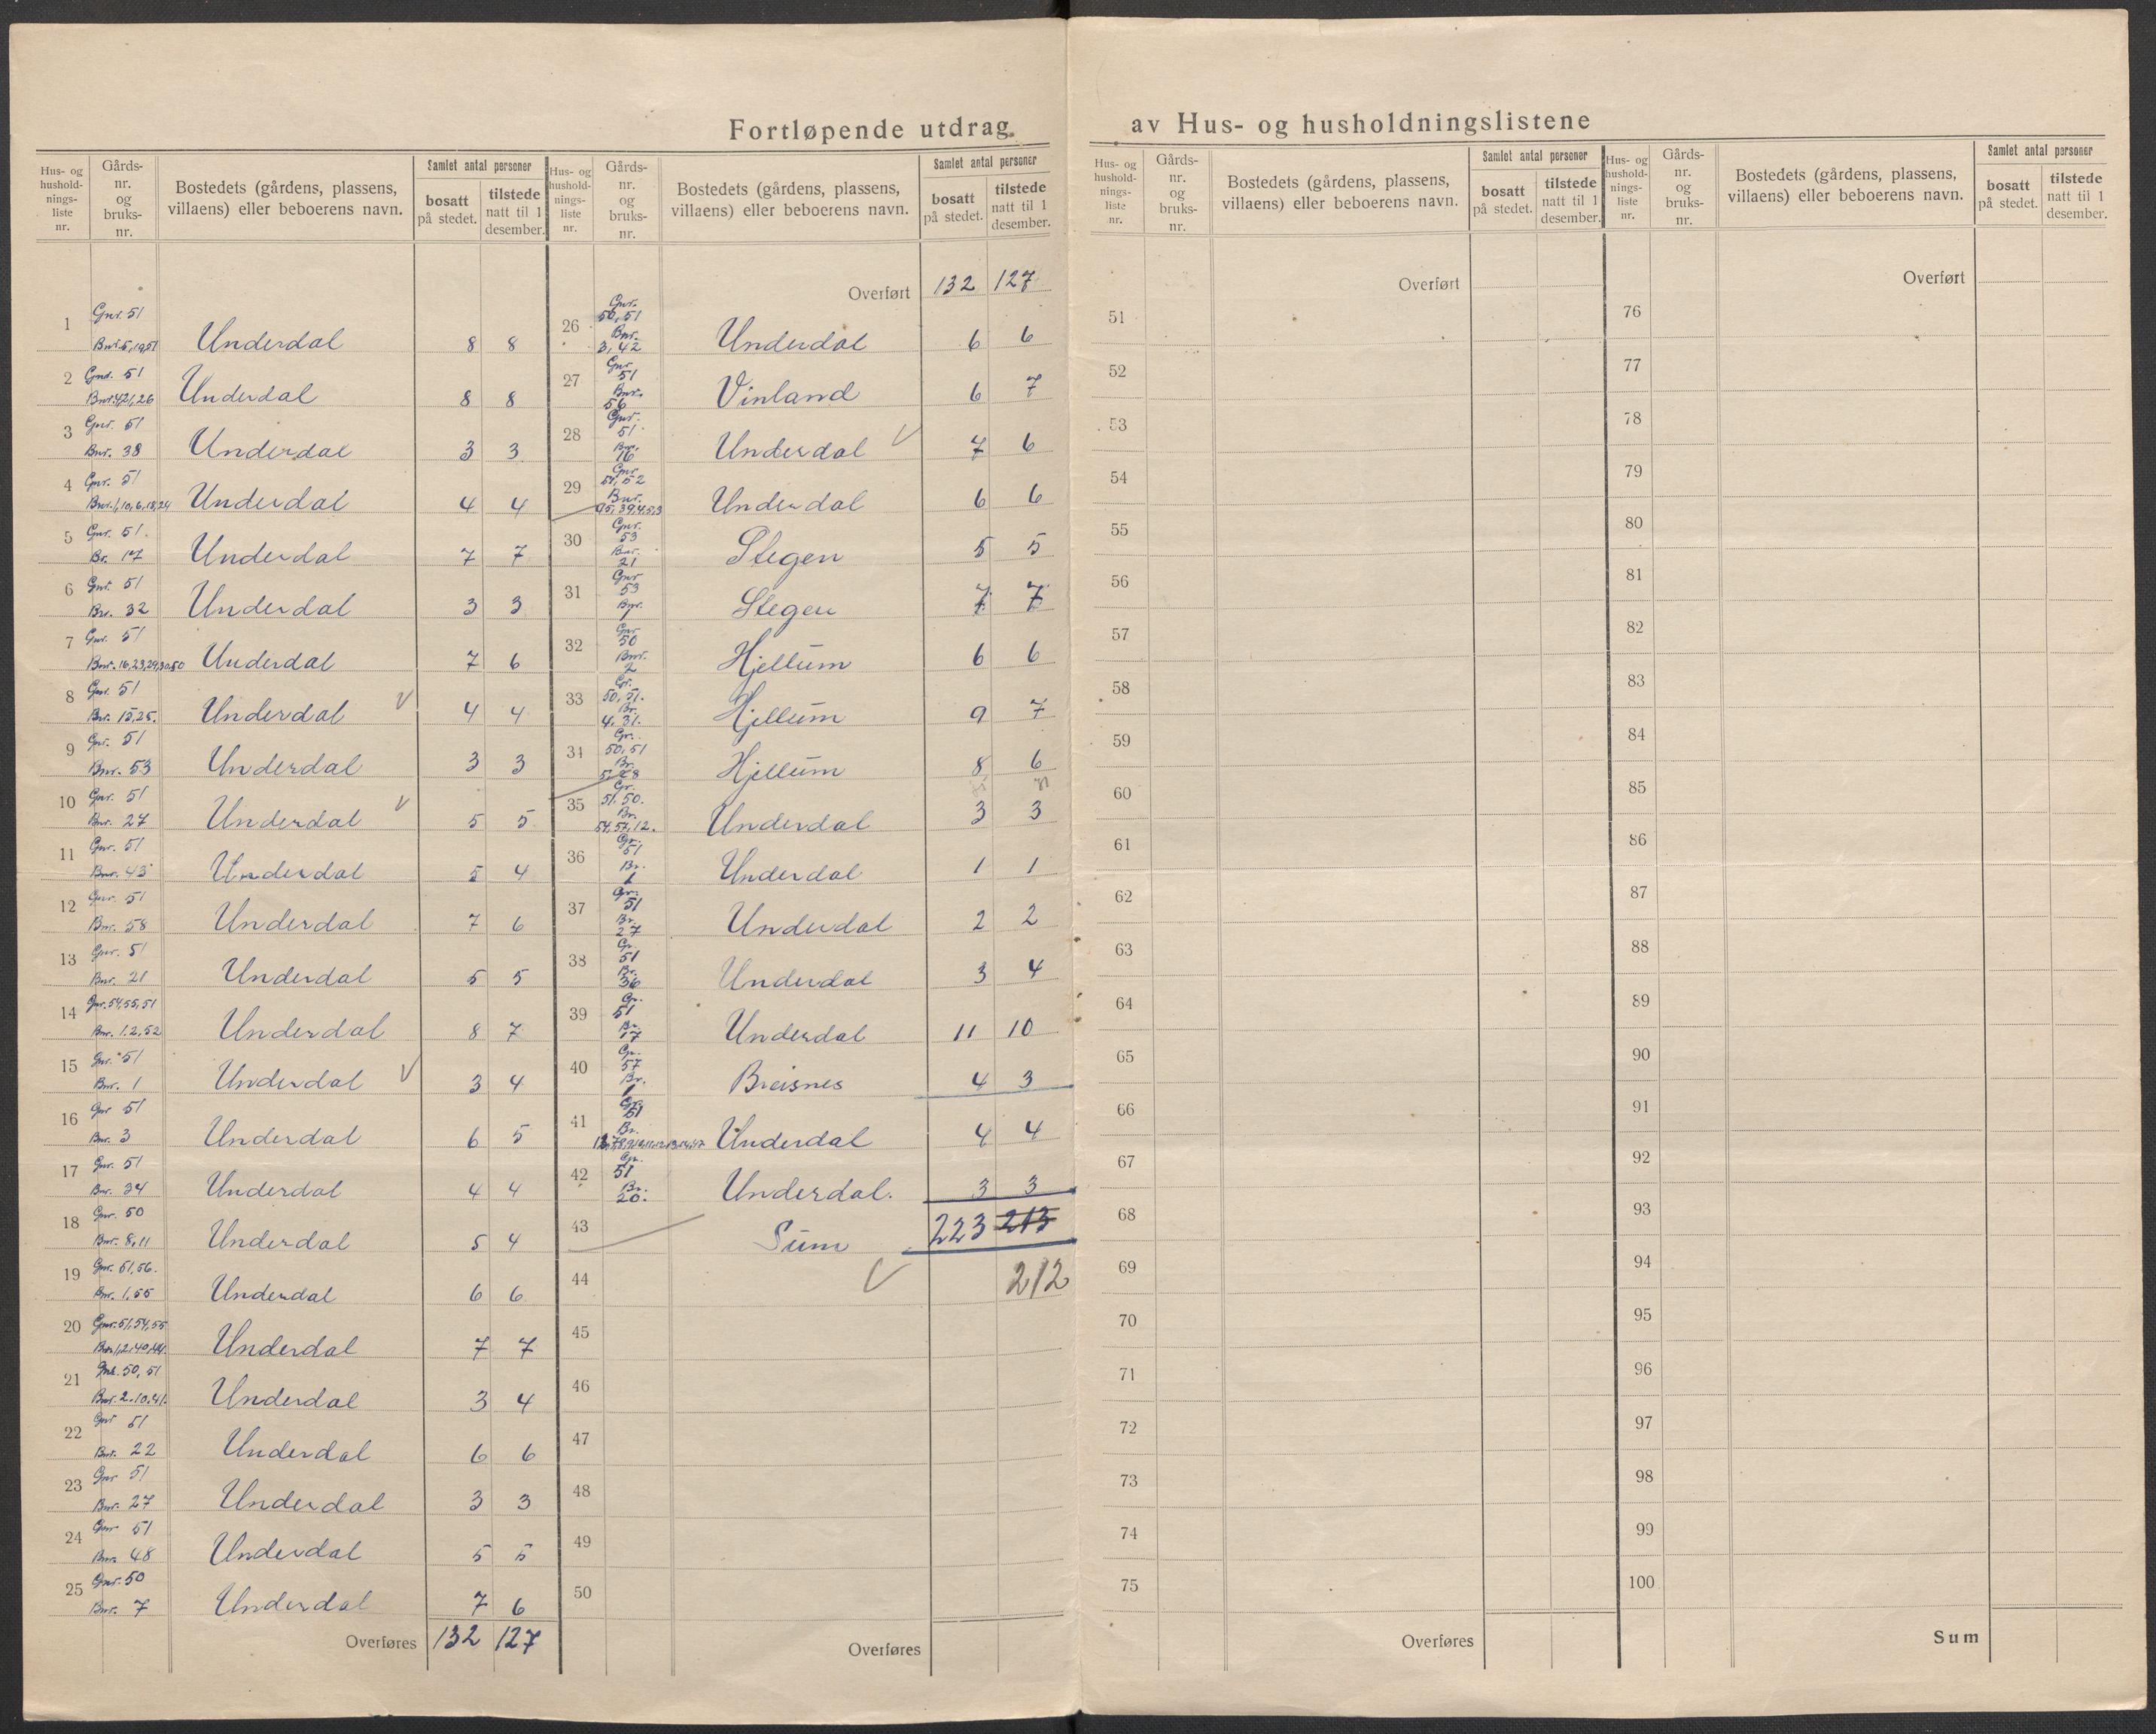 Fortløpende utdrag av Hus- og husholdningslistene
Hus- og hushold-nings-liste nr. | Gårds-nr. og bruks-nr. | Bostedets (gårdens, plassens, villaens) eller beboerens navn. | Samlet antal personer | bosatt på stedet. | tilstede natt til 1 desember.
1 Gnr. 51 Bnr. 5,19,51 Underdal 8 8
2 Gnr. 51 Bnr. 4,21,26 Underdal 8 8
3 Gnr. 51 Bnr. 38 Underdal 3 3
4 Gnr. 51 Bnr. 1,10,6,18,24 Underdal 4 4
5 Gnr. 51. Br. 17 Underdal 7 7
6 Gnr. 51 Bnr. 32 Underdal 3 3
7 Gnr. 51 Bnr. 16,23,29,30,50 Underdal 7 6
8 Gnr. 51 Bnr. 15,25. Underdal 4 4
9 Gnr. 51 Bnr. 53 Underdal 3 3
10 Gnr. 51 Bnr. 27 Underdal 5 5
11 Gnr. 51 Bnr. 43 Underdal 5 4
12 Gnr. 51 Bnr. 58 Underdal 7 6
13 Gnr. 51 Bnr. 21 Underdal 5 5
14 Gnr. 54,55,51 Bnr. 1.2,52 Underdal 8 7
15 Gnr. 51 Bnr. 1 Underdal 3 4
16 Gnr 51 Bnr. 3 Underdal 6 5
17 Gnr. 51 Bnr. 34 Underdal 4 4
18 Gnr. 50 Bnr. 8,11 Underdal 5 4
19 Gnr. 51,56. Bnr. 1,55 Underdal 6 6
20 Gnr. 51,54,55 Bnr. 1,2,40,44. Underdal 7 7
21 Gnr. 50, 51 Bnr. 2.10,41. Underdal 3 4
22 Gnr 51 Bnr. 22 Underdal 6 6
23 Gnr 51 Bnr. 27 Underdal 3 3
24 Gnr 51 Bnr. 48 Underdal 5 5
25 Gnr. 50 Bnr. 7 Underdal 7 6
Overføres 132 127
Hus- og hushold-nings-liste nr. | Gårds-nr. og bruks-nr. | Bostedets (gårdens, plassens, villaens) eller beboerens navn. | Samlet antal personer | bosatt på stedet. | tilstede natt til 1 desember.
Overført 132 127
26 Gnr. 50,51 Bnr. 3,42 Underdal 6 6
27 Gnr. 51 Bnr. 56 Vinland 6 7
28 Gnr. 51 Bnr. 76 Underdal 7 6
29 Gnr. 51, 52 Bnr. Underdal 6 6
30 Gnr. 53 Bnr. 21 Stegen 5 5
31 Gnr 53 Bnr. 1 Stegen 7 7
32 Gnr 50 Bnr. 2 Hjellum 6 6
33 Gr. 50,51. Br. 4,31. Hjellum 9 7
34 Gr. 50,51 Br. Hjellum 8 6
35 Gr. 51.50. Br. 54,57,12. Underdal 3 3
36 Gr. 51 Br. 1 Underdal 1 1
37 Gr. 51 Br. 27 Underdal 2 2
38 Gr. 51 Br. 36 Underdal 3 4
39 Gr. 51 Br. 17 Underdal 11 10
40 Gr. 57 Br. 1 Breisnes 4 3
41 Gr. 51 Br. Underdal 4 4
42 Gr. 51 Br. 20. Underdal. 3 3
43 Sum 223 213
44 212
45
46
47
48
49
50
Overføres
Hus- og hushold-nings-liste nr. | Gårds-nr. og bruks-nr. | Bostedets (gårdens, plassens, villaens) eller beboerens navn. | Samlet antal personer | bosatt på stedet. | tilstede natt til 1 desember.
Overført
51
52
53
54
55
56
57
58
59
60
61
62
63
64
65
66
67
68
69
70
71
72
73
74
75
Overføres
Hus- og hushold-nings-liste nr. | Gårds-nr. og bruks-nr. | Bostedets (gårdens, plassens, villaens) eller beboerens navn. | Samlet antal personer | bosatt på stedet. | tilstede natt til 1 desember.
Overført
76
77
78
79
80
81
82
83
84
85
86
87
88
89
90
91
92
93
94
95
96
97
98
99
100
Sum